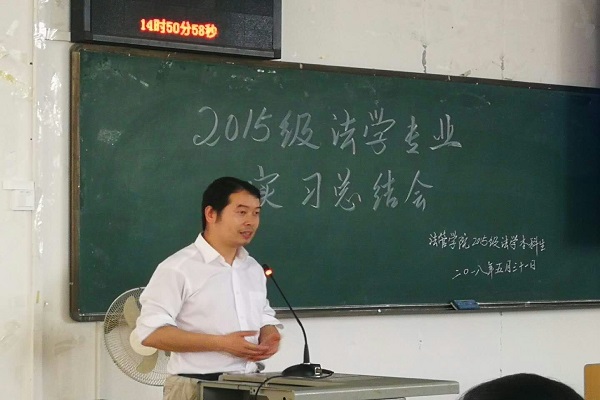 14时50分58秒
2015级法学专业
实习总结会
法管学院2015级法学本科生
二〇一八年五月三十一日